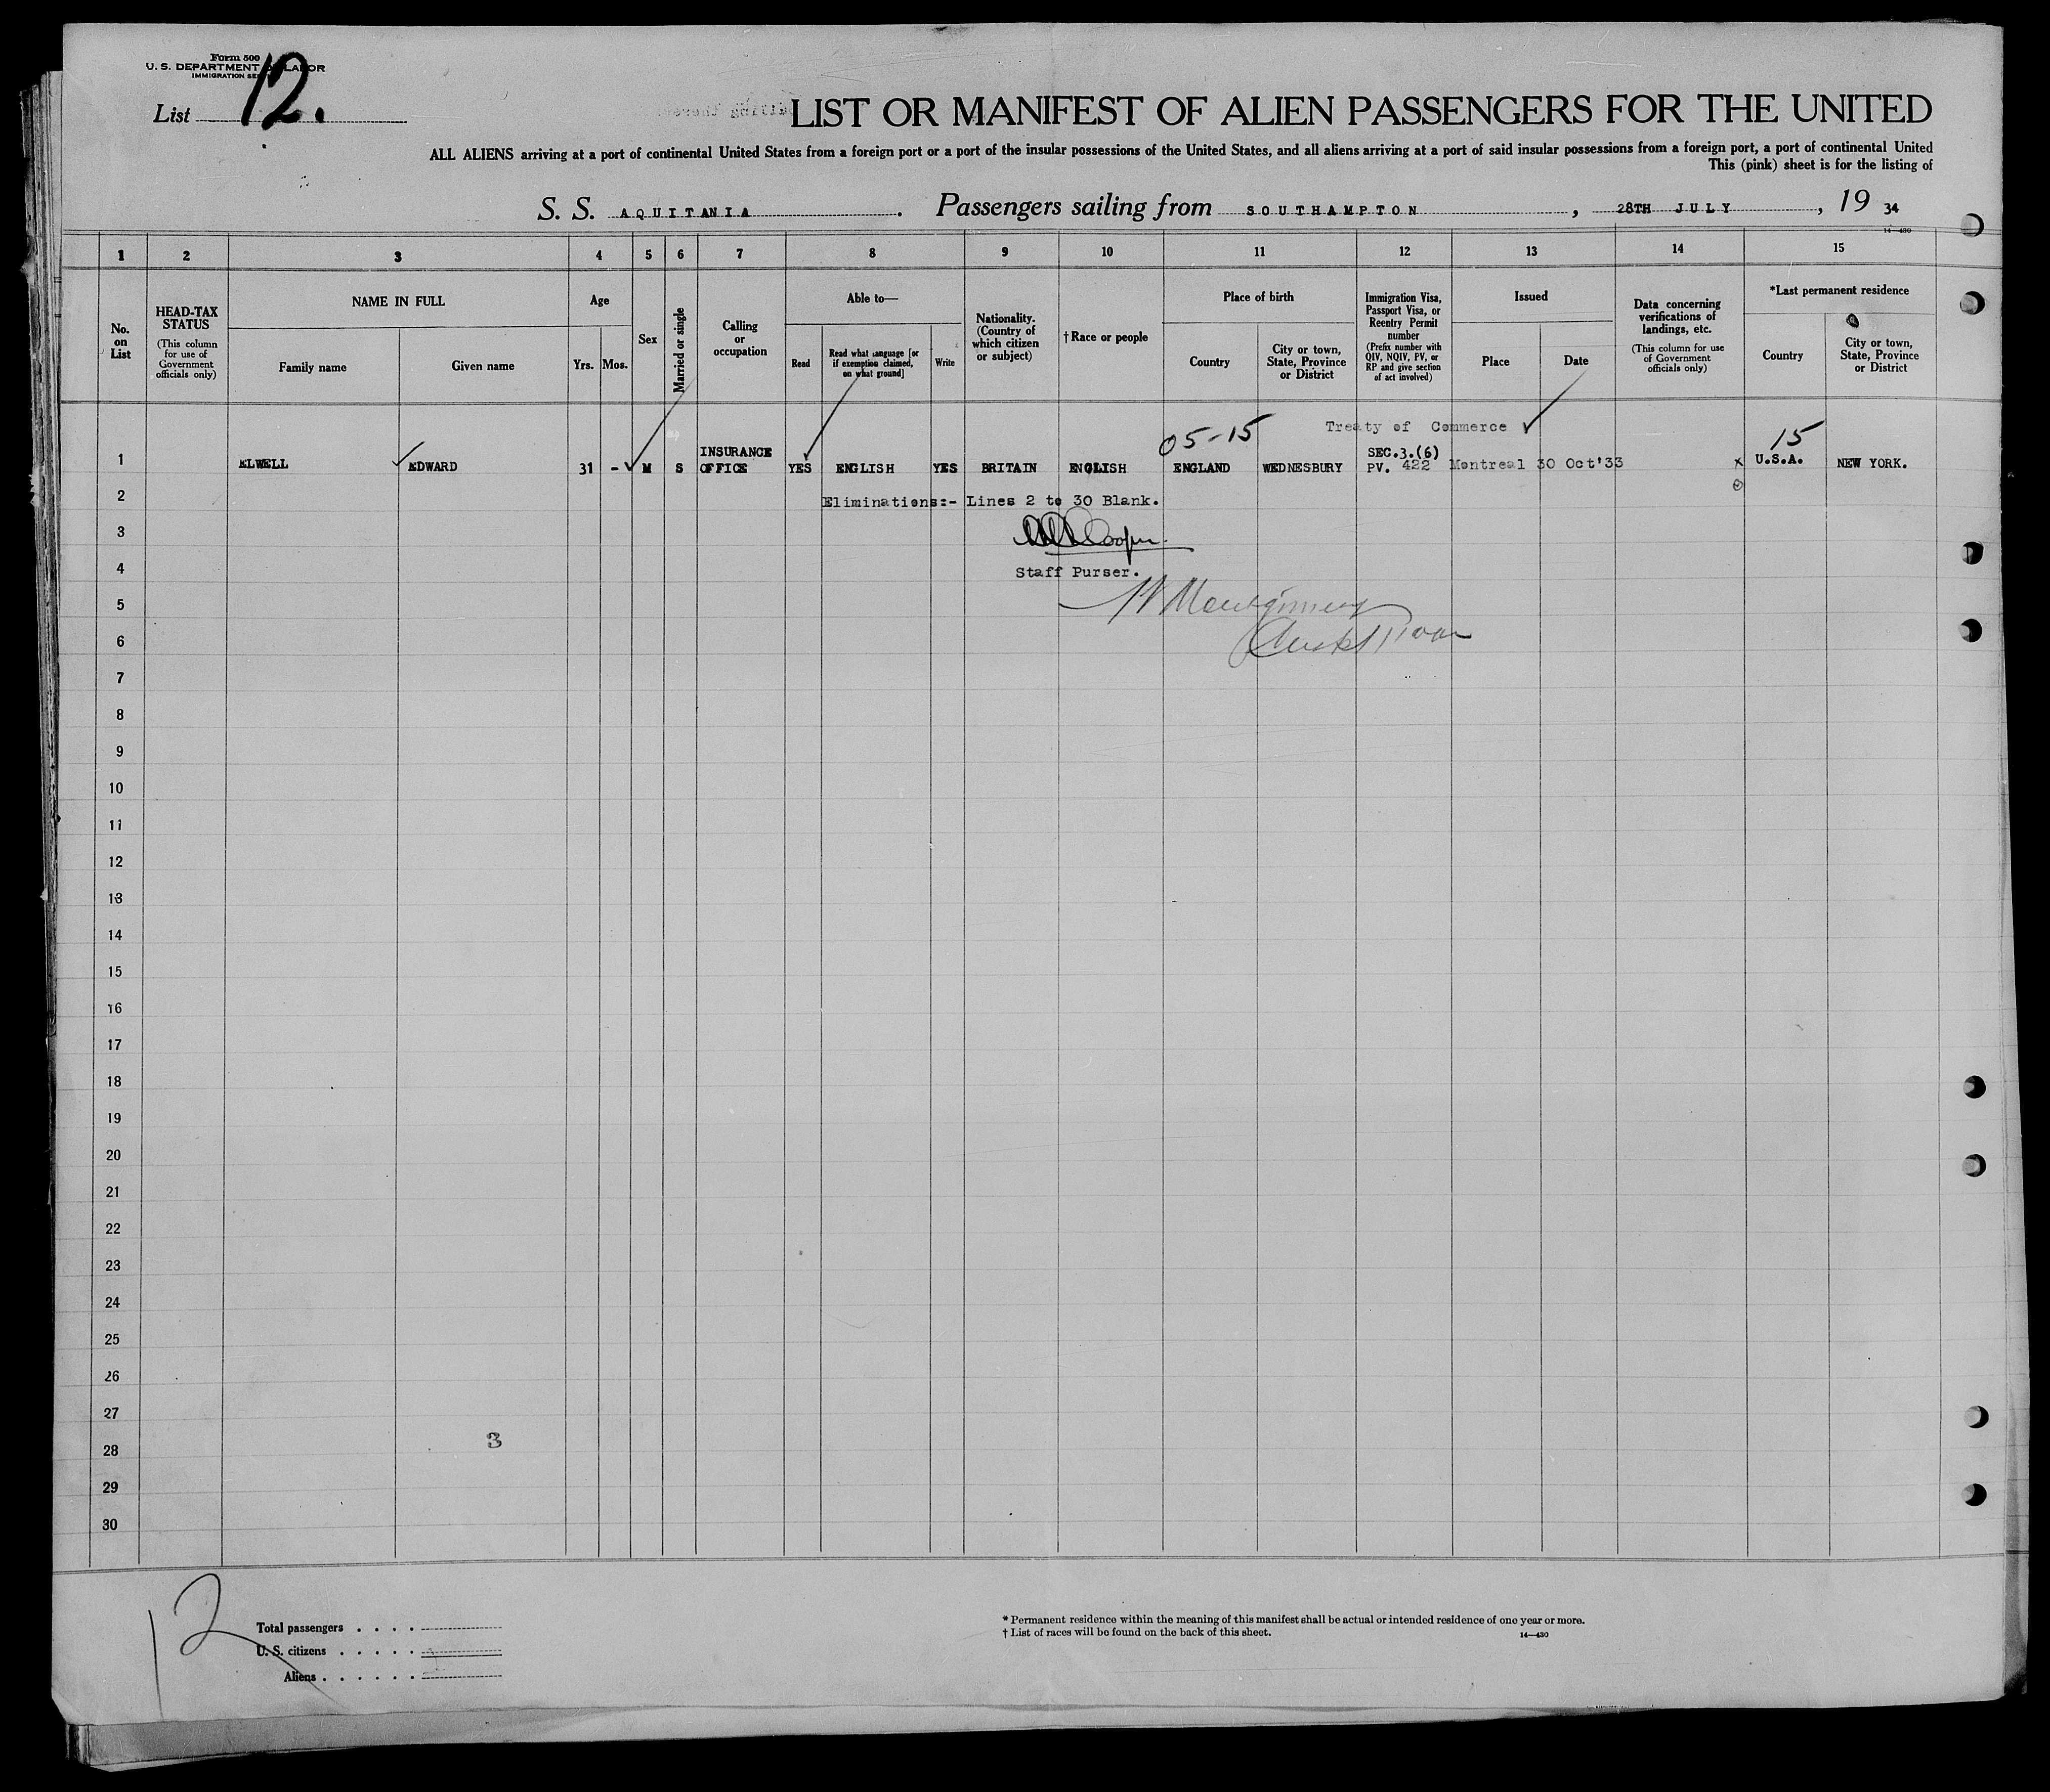 Form 500
U. S. DEPARTMENT OF LABOR
IMMIGRATION SE
List 12.
LIST OR MANIFEST OF ALIEN PASSENGERS FOR THE UNITED
ALL ALIENS arriving at a port of continental United States from a foreign port or a port of the insular possessions of the United States, and all aliens arriving at a port of said insular possessions from a foreign port, a port of continental United
This (pink) sheet is for the listing of
S. S. AQUITANIA . Passengers sailing from SOUTHAMPTON , 28TH JULY , 19 34
14-430
1 2 3 4 5 6 7 8 9 10 11 12 13 14 15
No. on List
HEAD-TAX STATUS
(This column for use of Government officials only)
NAME IN FULL
Family name
Given name
Age
Yrs.
Mos.
Sex
Married or single
Calling or occupation
Able to—
Read
Read what language [or if exemption claimed, on what ground]
Write
Nationality. (Country of which citizen or subject)
†Race or people
Place of birth
Country
City or town, State, Province or District
Immigration Visa, Passport Visa, or Reentry Permit number
(Prefix number with QIV, NQIV, PV, or RP and give section of act involved)
Issued
Place
Date
Data concerning verifications of landings, etc.
(This column for use of Government officials only)
*Last permanent residence
Country
City or town, State, Province or District
05-15 Treaty of Commerce 15
INSURANCE SEC.3.(6)
1 ELWELL EDWARD 31 - M S OFFICE YES ENGLISH YES BRITAIN ENGLISH ENGLAND WEDNESBURY PV. 422 Montreal 30 Oct'33 x U.S.A. NEW YORK.
2 Eliminations:- Lines 2 to 30 Blank.
3 Cooper
4 Staff Purser.
5 Montgomery
6
7
8
9
10
11
12
13
14
15
16
17
18
19
20
21
22
23
24
25
26
27
28 3
29
30
12
Total passengers . . . .
U. S. citizens . . . . .
Aliens . . . . . .
* Permanent residence within the meaning of this manifest shall be actual or intended residence of one year or more.
† List of races will be found on the back of this sheet. 14-430